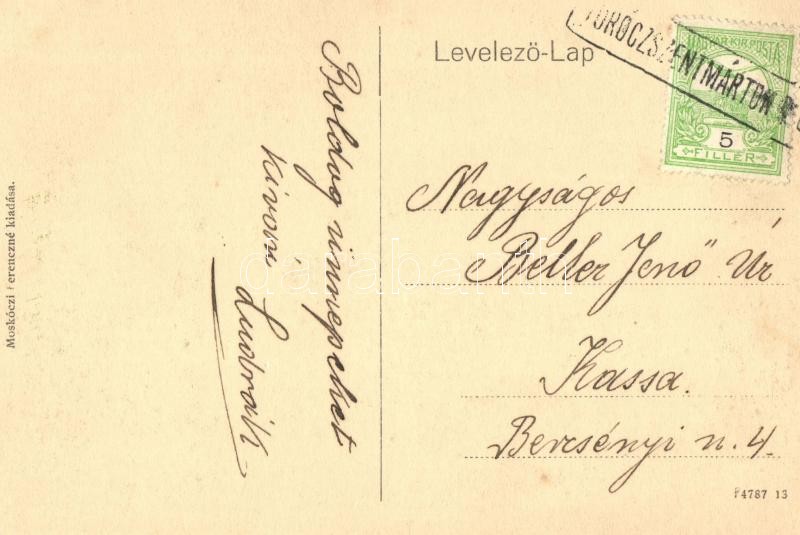 Levelező-Lap
TURÓCZSZENTMÁRTON
MAGYAR KIR. POSTA
5
FILLÉR
Boldog ünnepeket
kíván
Nagyságos
Beller Jenő Úr
Kassa.
Bercsényi u. 4.
Moskóczi Ferenczné kiadása.
4787 13
darabanth